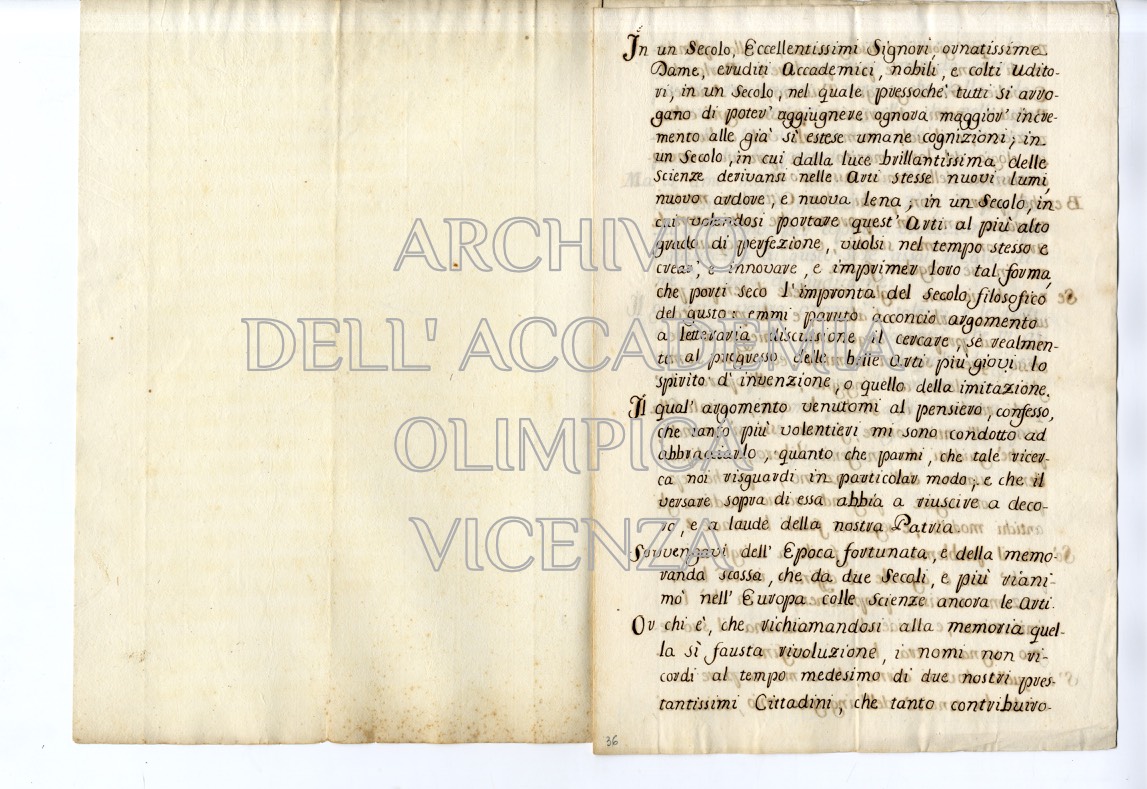 In un Secolo, Eccellentissimi Signori, ornatissime
Dame, eruditi Accademici, nobili, e colti Udito-
ri, in un Secolo, nel quale pressoche' tutti si arro-
gano di poter' aggiugnere ognora maggior' incre-
mento alle già sì estese umane cognizioni; in
un Secolo, in cui dalla luce brillantissima delle
Scienze derivansi nelle Arti stesse nuovi lumi,
nuovo ardore, e nuova lena; in un Secolo, in
cui volendosi portare quest' Arti al più alto
grado di perfezione, vuolsi nel tempo stesso e
crear', e innovare, e imprimer loro tal forma,
che porti seco l'impronta del Secolo filosofico,
del gusto: emmi paruto acconcio argomento
a letteraria discussione il cercare se realmen-
te al progresso delle belle Arti più giovi lo
spirito d' invenzione, o quello della imitazione.
Il qual' argomento venutomi al pensiero, confesso,
che tanto più volentieri mi sono condotto ad
abbracciarlo, quanto che parmi, che tale ricer-
ca noi risguardi in particolar modo; e che il
versare sopra di essa abbia a riuscire a deco-
ro, e a laude della nostra Patria.
Sovvengavi dell' Epoca fortunata, e della memo-
randa scossa, che da due Secoli, e più riani-
mò nell' Europa colle Scienze ancora le Arti.
Or chi è, che richiamandosi alla memoria quel-
la sì fausta rivoluzione, i nomi non ri-
cordi al tempo medesimo di due nostri pres-
tantissimi Cittadini, che tanto contribuiro-
36
ARCHIVIO
DELL' ACCADEMIA
OLIMPICA
VICENZA